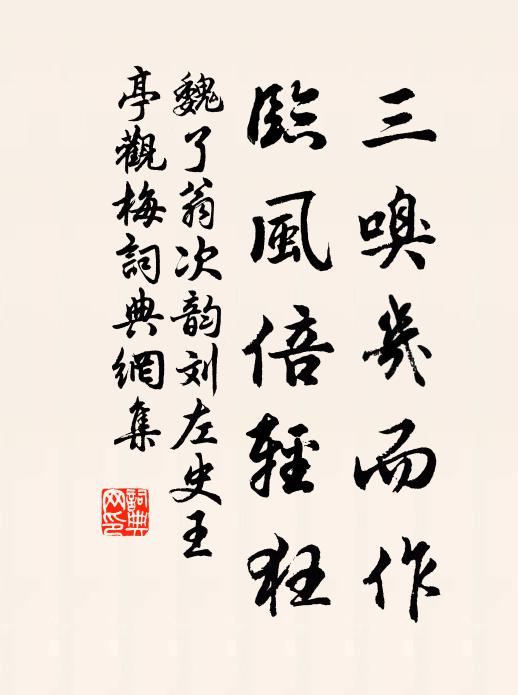 三嗅幾而作
臨風倍輕狂
魏了翁次韵刘左史王
亭觀梅詞典網集
詞典网印